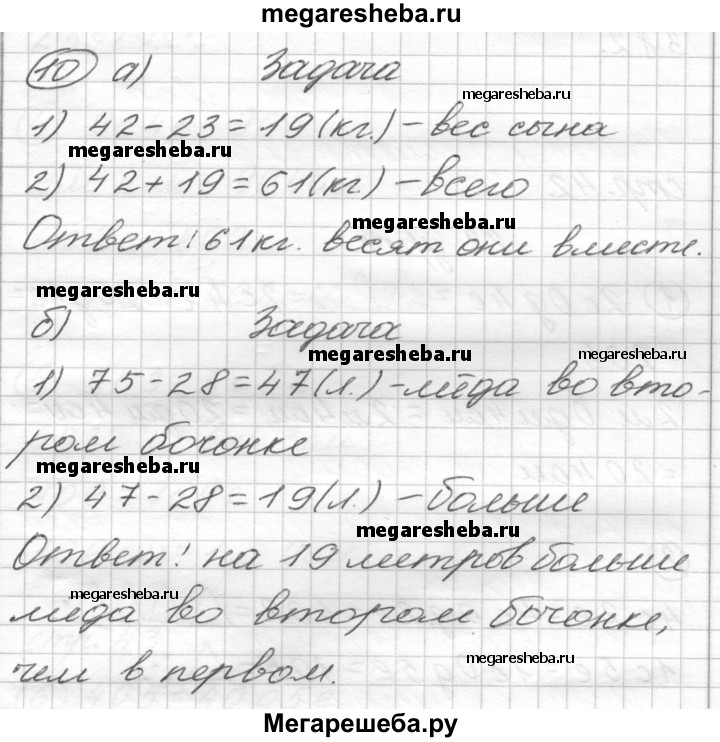 megaresheba.ru
10 а) Задача
megaresheba.ru
1) 42-23=19(кг.)-вес сына
megaresheba.ru
2) 42+19=61(кг.)-всего
megaresheba.ru
Ответ: 61кг. весят они вместе.
megaresheba.ru
б) Задача
megaresheba.ru megaresheba.ru
1) 75-28=47(л.)-мёда во вто-
ром бочонке
megaresheba.ru
2) 47-28=19(л.)-больше
megaresheba.ru
Ответ: на 19 метров больше
megaresheba.ru
меда во втором бочонке,
megaresheba.ru
чем в первом.
Мегарешеба.ру